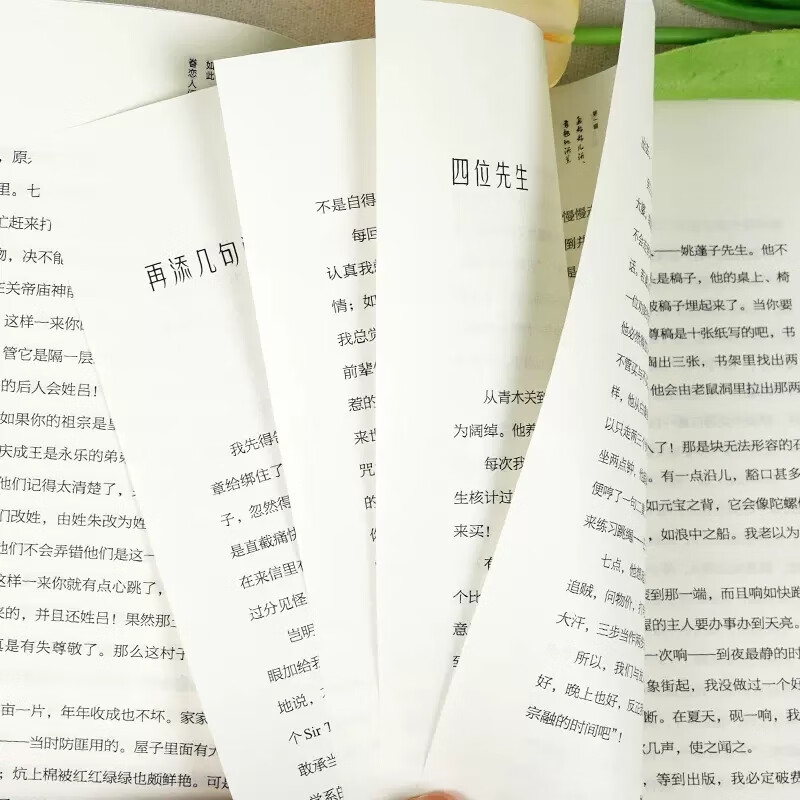 如此
眷恋人
，原来
里。七
忙赶来打
物，决不能
在关帝庙神
这样一来你
管它是隔一层
的后人会姓吕！
如果你的祖宗是
庆成王是永乐的弟弟
他们记得太清楚了，
们改姓，由姓朱改为姓
他们不会弄错他们是这一
这样一来你就有点心跳了，
来的，并且还姓吕！果然那
真是有失尊敬了。那么这村子
亩一片，年年收成也不坏。家家
——当时防匪用的。屋子里面有
；炕上棉被红红绿绿也颇鲜艳。可是
再添几句
我先得
章给绑住了
子，忽然得
是直截痛快
在来信里有
过分见怪
岂明
眼加给我
地说，
个 Sir T
敢承
学系的
不是自得
每回
认真我
情；如
我总觉
前辈
惹的
来世
咒
的
你
四位先生
从青木关到
为阔绰。他养
每次我
生核计过
来买！
有
个比
意
到
第一辑
慢慢
倒
是
大家，
不会
话，
一位
他必然
不管买与不
样，他从白
以只走两三个
坐两点钟，他
便哼了一句二
来练习跳绳——
七点，他想
追贼，问物价，打
大汗，三步当作两步
所以，我们与
好，晚上也好，反正
宗融的时间吧”！
——姚蓬子先生。他不
头是稿子，他的桌上、椅
被稿子埋起来了。当你要
尊稿是十张纸写的吧，书
掏出三张，书架里找出两
他会由老鼠洞里拉出那两
人了！那是块无法形容的石
。有一点沿儿，豁口甚多
如元宝之背，它会像陀螺似
，如浪中之船。我老以为
到那一端，而且响如快跑
屋的主人要办事办到天亮。
一次响——到夜最静的时
象街起，我没做过一个好
断。在夏天，砚一响，我
几声，使之闻之。
，等到出版，我必定破费